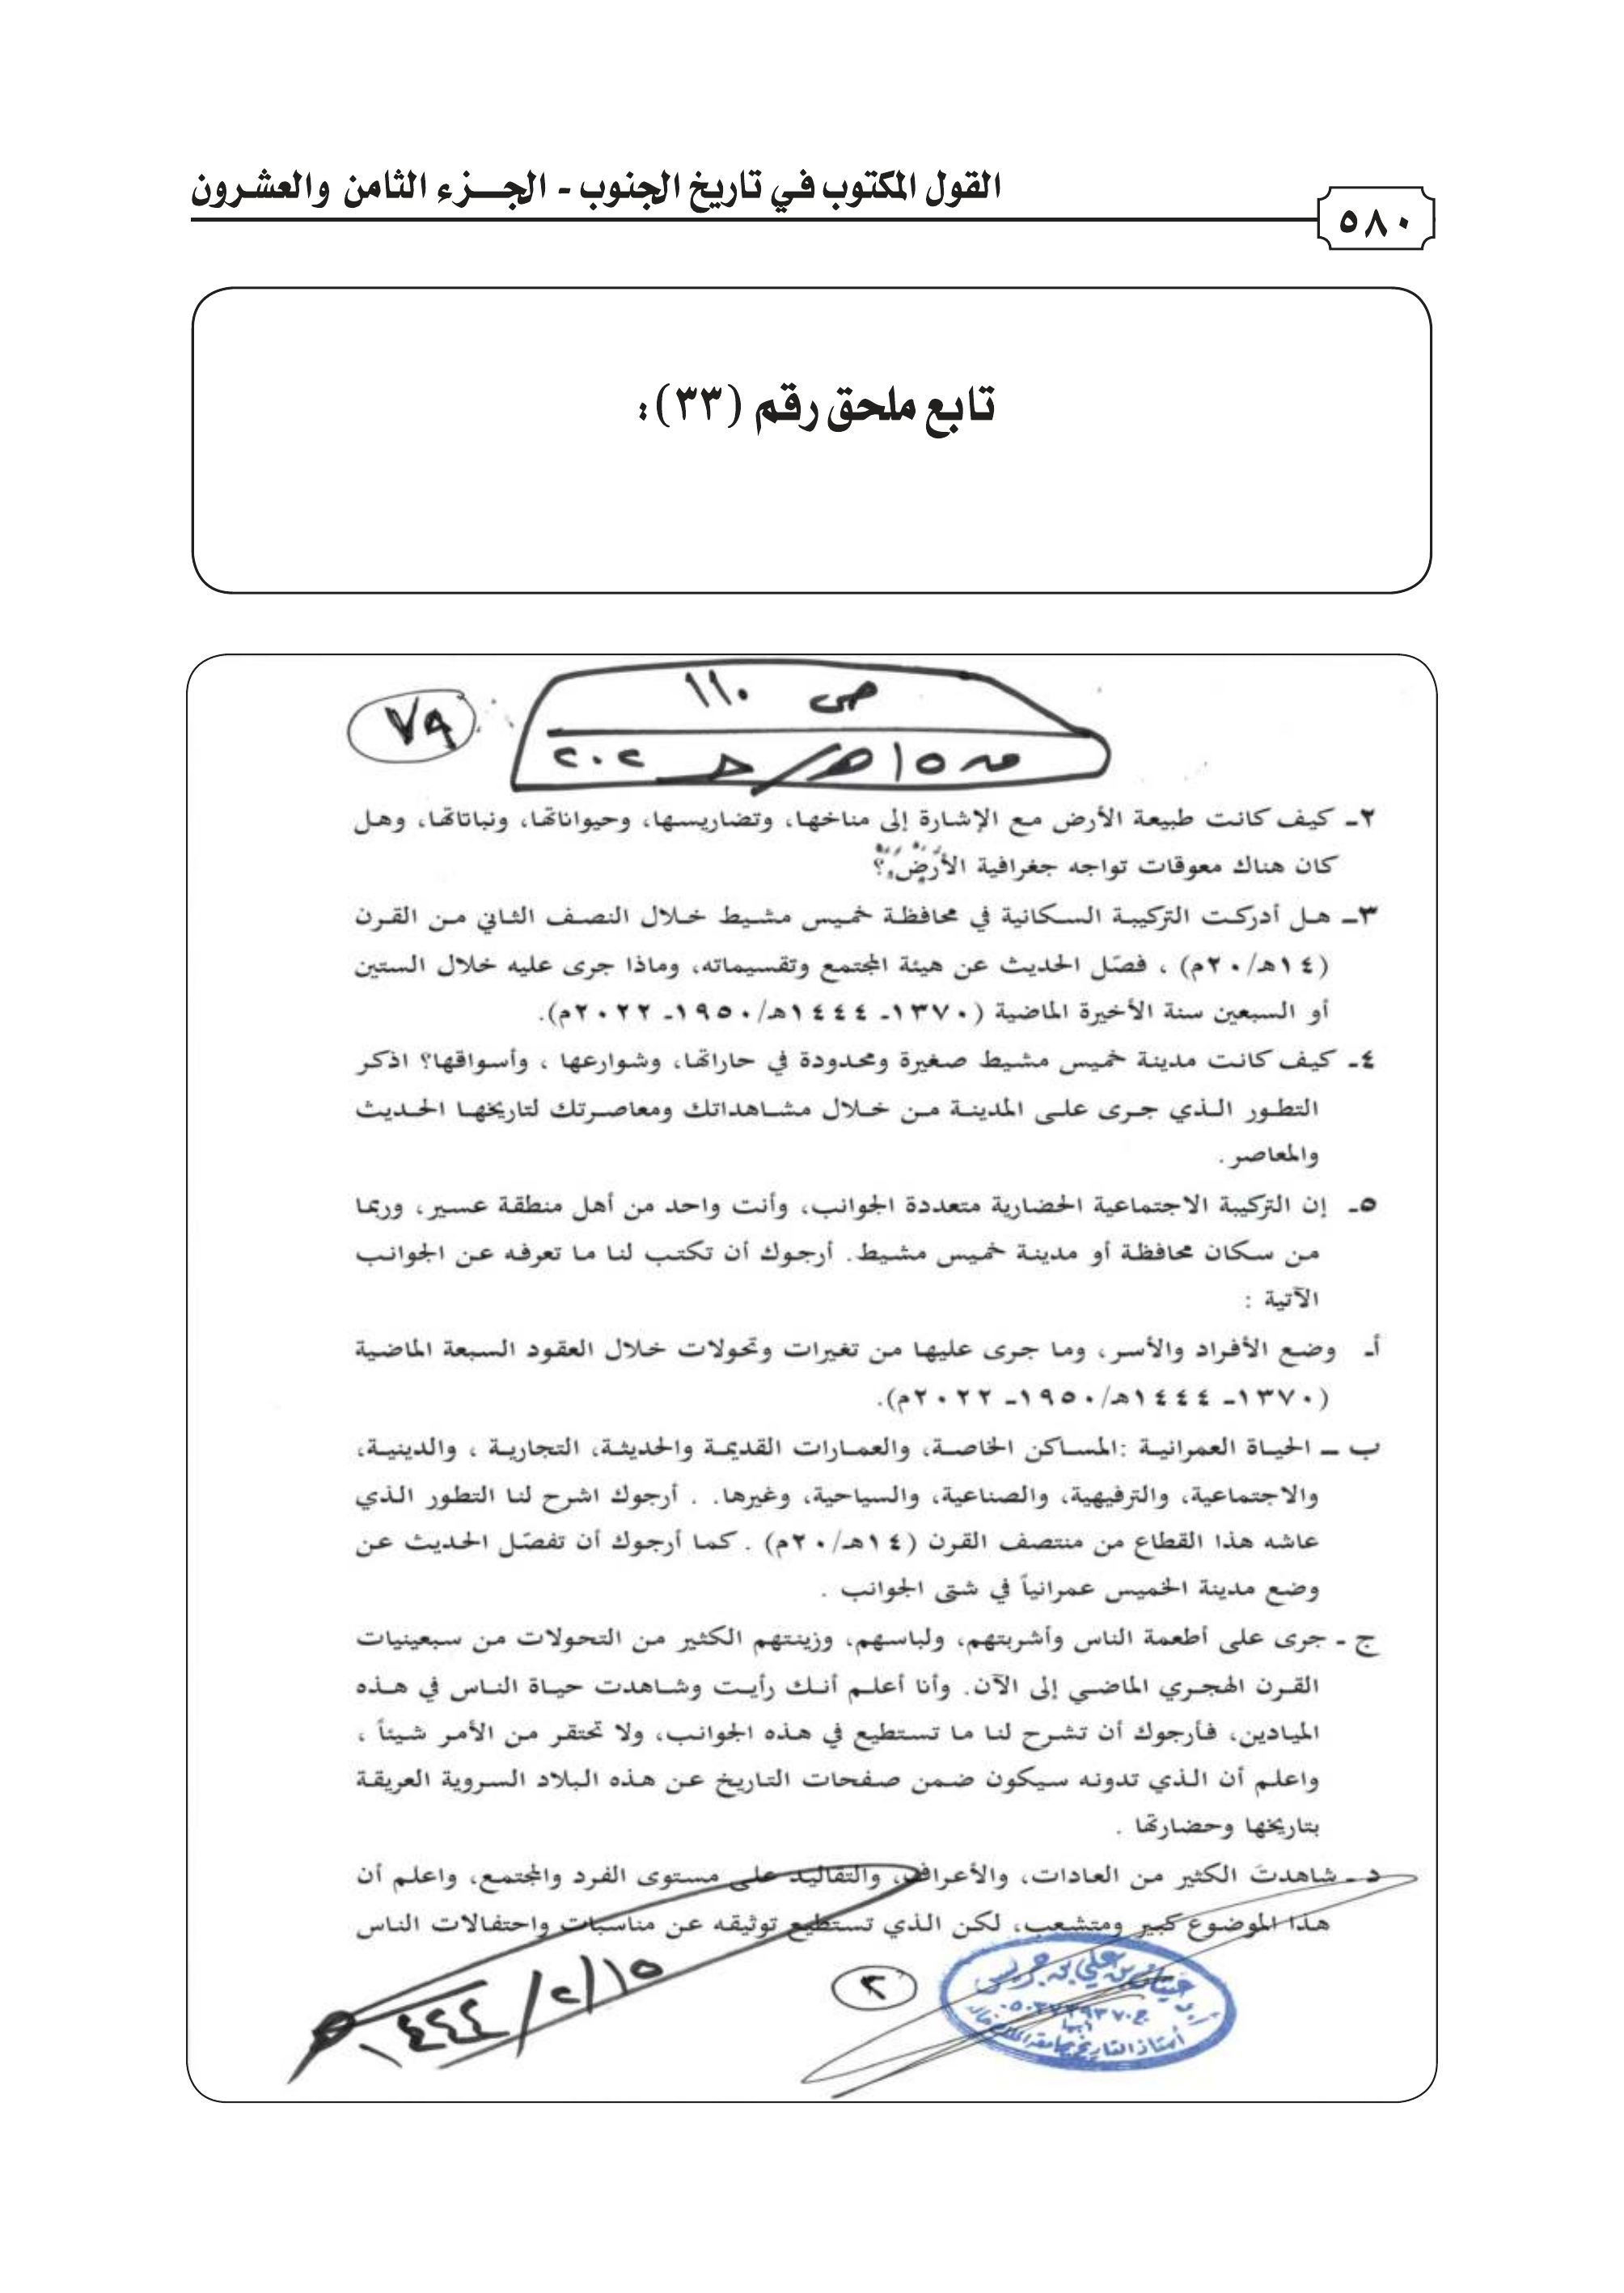 القول المكتوب في تاريخ الجنوب - الجـــزء الثامن والعشرون
٥٨٠
تابع ملحق رقم (٣٣):
ص ١١٠
٧٩
٢٠٢
٢ـ كيف كانت طبيعة الأرض مع الإشارة إلى مناخها، وتضاريسها، وحيواناتها، ونباتاتها، وهل
كان هناك معوقات تواجه جغرافية الأرض؟
٣ـ هل أدركت التركيبة السكانية في محافظة خميس مشيط خلال النصف الثاني من القرن
(١٤هـ/٢٠م) ، فصّل الحديث عن هيئة المجتمع وتقسيماته، وماذا جرى عليه خلال الستين
أو السبعين سنة الأخيرة الماضية (١٣٧٠ـ ١٤٤٤هـ/١٩٥٠ـ ٢٠٢٢م).
٤ـ كيف كانت مدينة خميس مشيط صغيرة ومحدودة في حاراتها، وشوارعها ، وأسواقها؟ اذكر
التطور الذي جرى على المدينة من خلال مشاهداتك ومعاصرتك لتاريخها الحديث
والمعاصر .
٥ـ إن التركيبة الاجتماعية الحضارية متعددة الجوانب، وأنت واحد من أهل منطقة عسير، وربما
من سكان محافظة أو مدينة خميس مشيط. أرجوك أن تكتب لنا ما تعرفه عن الجوانب
الآتية :
أـ وضع الأفراد والأسر، وما جرى عليها من تغيرات وتحولات خلال العقود السبعة الماضية
(١٣٧٠ـ ١٤٤٤هـ/١٩٥٠ـ ٢٠٢٢م).
ب ـ الحياة العمرانية :المساكن الخاصة، والعمارات القديمة والحديثة، التجارية ، والدينية،
والاجتماعية، والترفيهية، والصناعية، والسياحية، وغيرها. . أرجوك اشرح لنا التطور الذي
عاشه هذا القطاع من منتصف القرن (١٤هـ/٢٠م) . كما أرجوك أن تفصّل الحديث عن
وضع مدينة الخميس عمرانياً في شتى الجوانب .
ج ـ جرى على أطعمة الناس وأشربتهم، ولباسهم، وزينتهم الكثير من التحولات من سبعينيات
القرن الهجري الماضي إلى الآن. وأنا أعلم أنك رأيت وشاهدت حياة الناس في هذه
الميادين، فأرجوك أن تشرح لنا ما تستطيع في هذه الجوانب، ولا تحتقر من الأمر شيئاً ،
واعلم أن الذي تدونه سيكون ضمن صفحات التاريخ عن هذه البلاد السروية العريقة
بتاريخها وحضارتها .
د ـ شاهدتَ الكثير من العادات، والأعراف، والتقاليد على مستوى الفرد والمجتمع، واعلم أن
هذا الموضوع كبير ومتشعب، لكن الذي تستطيع توثيقه عن مناسبات واحتفالات الناس
١٥/٢/١٤٤٤
٢
بن علي بن جريس
أبها
أستاذ التاريخ بجامعة الملك خالد